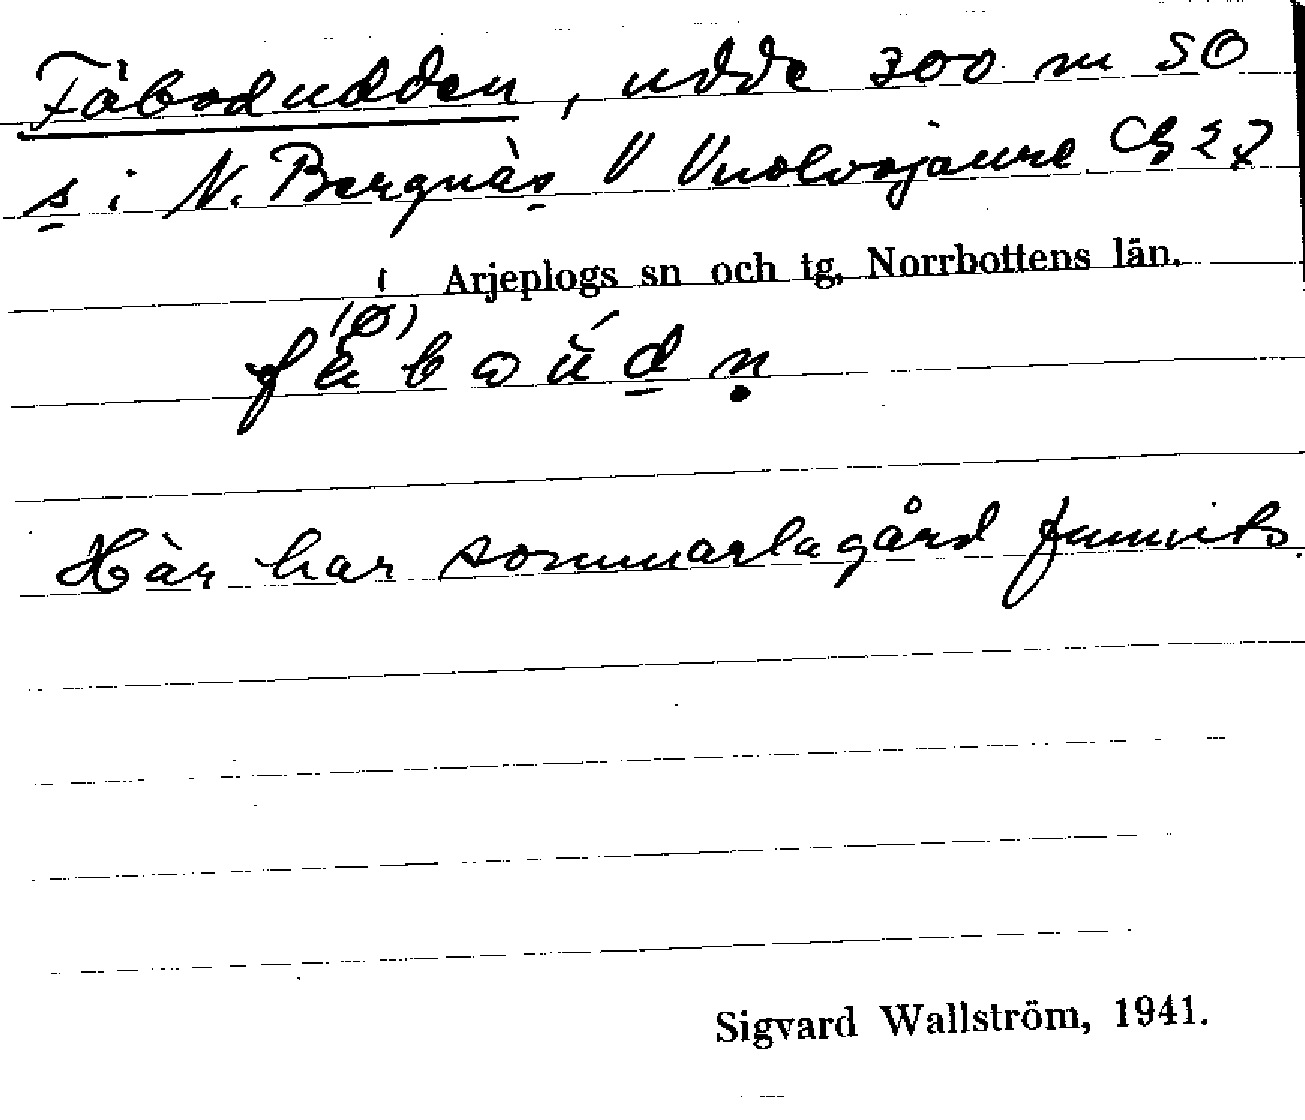 Fäbodudden, udde 300 m SO
s i N. Bergnäs V Vuolvojaure
Arjeplogs sn och tg, Norrbottens län.
Här har sommarlagård funnits.
Sigvard Wallström, 1941.